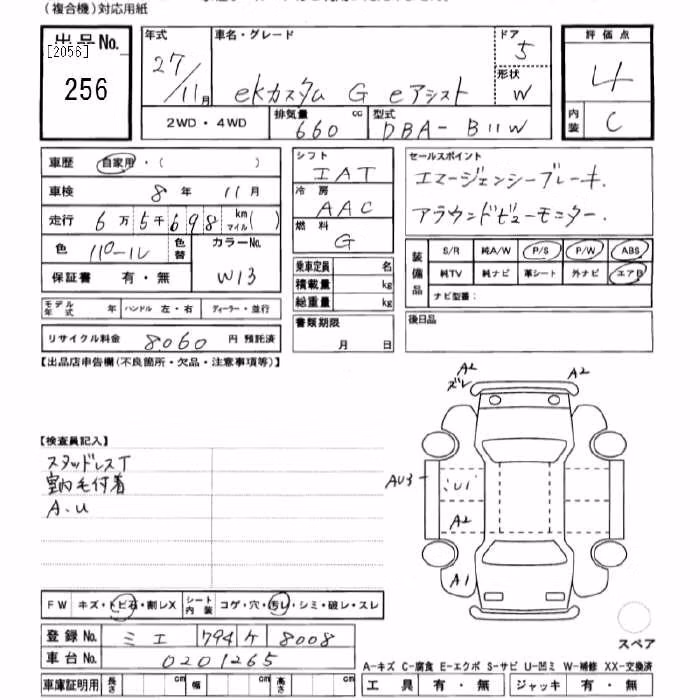 (複合機)対応用紙
出品No.
[2056]
256
年式
27/11月
車名・グレード
ekカスタム G eアシスト
ドア
5
形状
W
2WD・4WD
排気量
660 cc
型式
DBA- B11W
評価点
4
内装
C
車歴 自家用・( )
車検 8年 11月
走行 6万5千698 km マイル( )
色 パール
色替
カラーNo.
W13
保証書 有・無
モデル年式 年 ハンドル 左・右 ディーラー・並行
リサイクル料金 8060 円 預託済
シフト
IAT
冷房
AAC
燃料
G
乗車定員 名
積載量 kg
総重量 kg
書類期限
月 日
セールスポイント
エマージェンシーブレーキ.
アラウンドビューモニター.
装備品
S/R 純A/W P/S P/W ABS
純TV 純ナビ 革シート 外ナビ エアB
ナビ型番:
後日品
【出品店申告欄(不良箇所・欠品・注意事項等)】
【検査員記入】
スタッドレスT
室内毛付着
A.U
A2
ズレ
A2
AU3
U1
A2
A1
FW キズ・トビ石・割レX
シート内装 コゲ・穴・汚レ・シミ・破レ・スレ
登録No. ミエ 794 ケ 8008
車台No. 0201265
車庫証明用 長さ cm 幅 cm 高さ cm
スペア
A-キズ C-腐食 E-エクボ S-サビ U-凹ミ W-補修 XX-交換済
工具 有・無 ジャッキ 有・無